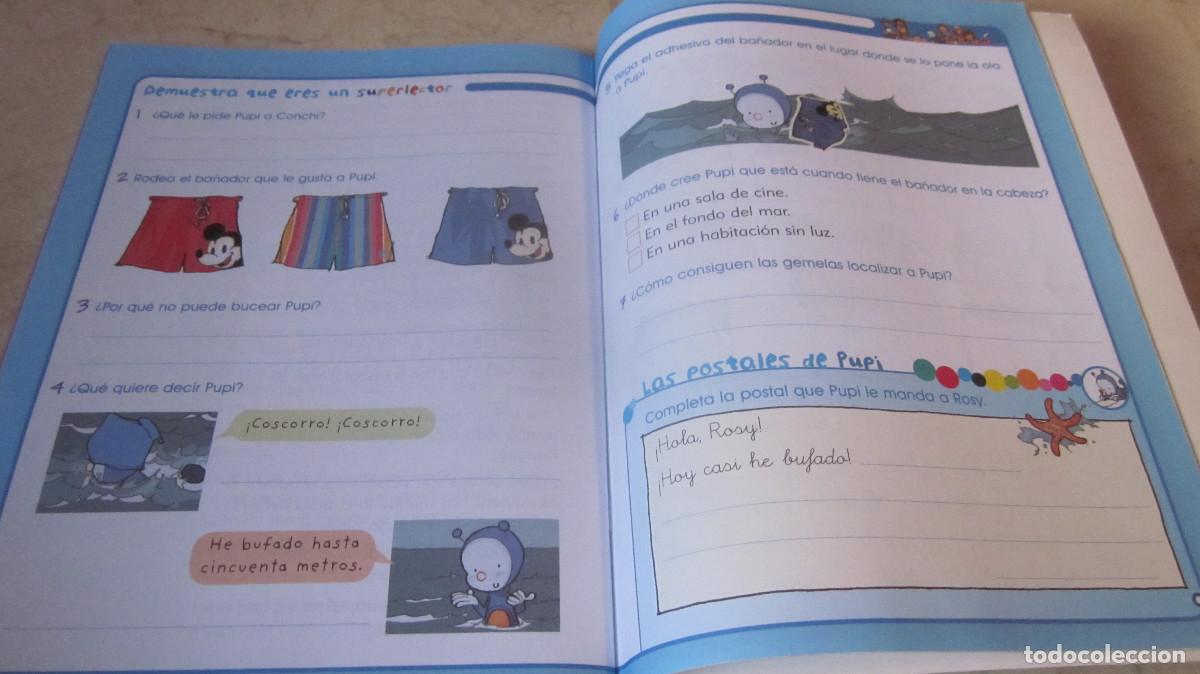 Demuestra que eres un superlector
1 ¿Qué le pide Pupi a Conchi?
2 Rodea el bañador que le gusta a Pupi.
3 ¿Por qué no puede bucear Pupi?
4 ¿Qué quiere decir Pupi?
¡Coscorro! ¡Coscorro!
He bufado hasta
cincuenta metros.
5 Pega el adhesivo del bañador en el lugar donde se lo pone la ola
a Pupi.
6 ¿Dónde cree Pupi que está cuando tiene el bañador en la cabeza?
En una sala de cine.
En el fondo del mar.
En una habitación sin luz.
7 ¿Cómo consiguen las gemelas localizar a Pupi?
Las postales de Pupi
Completa la postal que Pupi le manda a Rosy.
¡Hola, Rosy!
¡Hoy casi he bufado!
todocoleccion